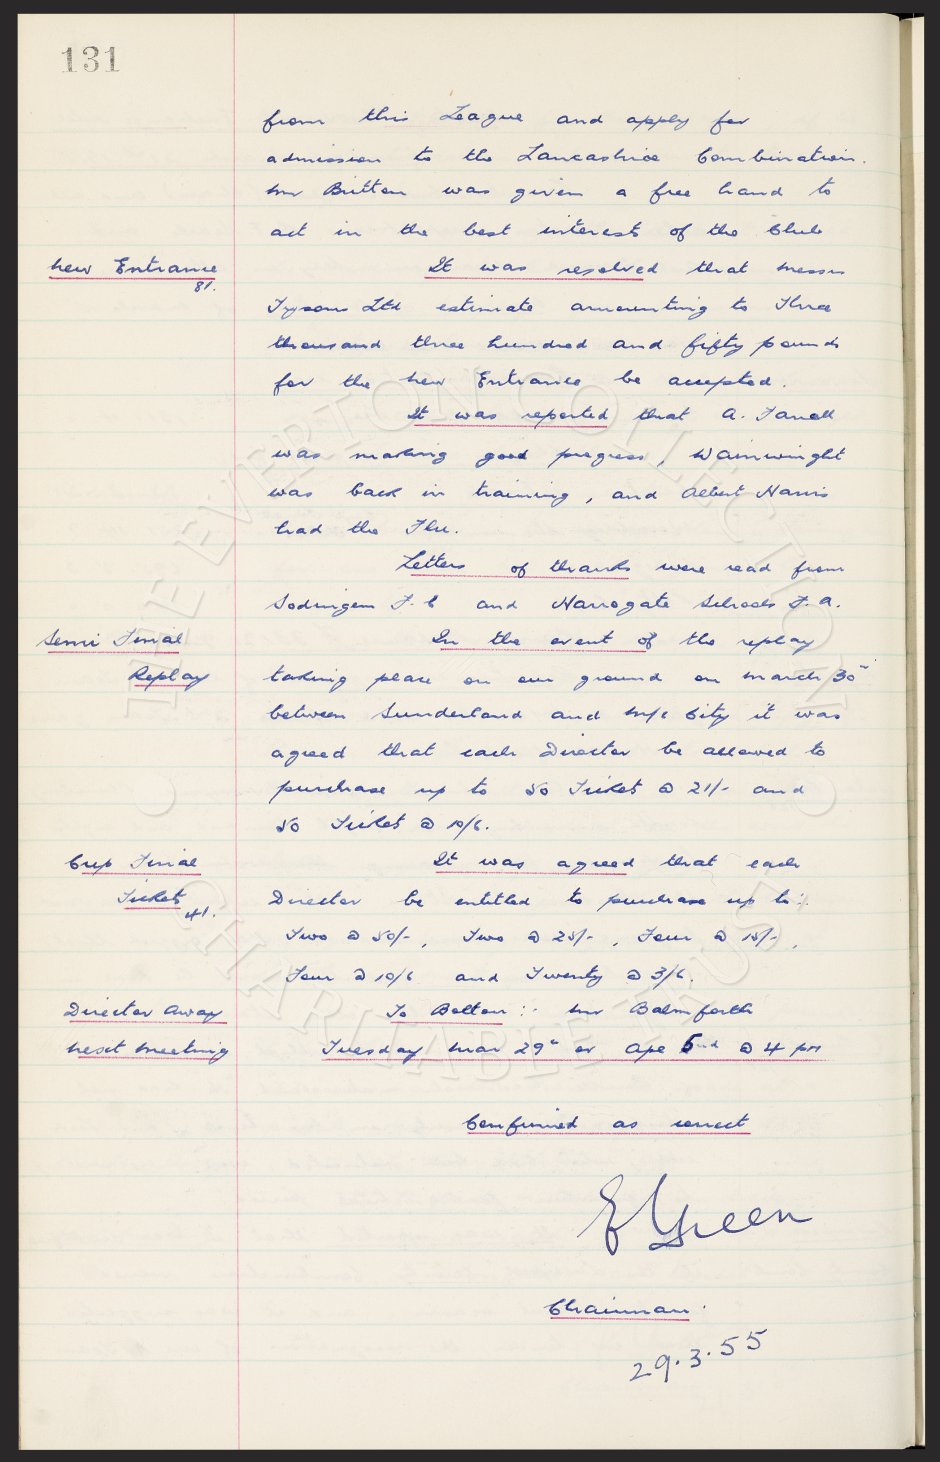 131
from this League and apply for
admission to the Lancashire Combination.
Mr Britton was given a free hand to
act in the best interests of the Club
New Entrance It was resolved that Messrs
81.
Tysons Ltd estimate amounting to Three
thousand three hundred and fifty pounds
for the New Entrance be accepted.
It was reported that A. Farrall
was making good progress, Wainwright
was back in training, and Albert Harris
had the Flu.
Letters of thanks were read from
Sodingen F.C and Harrogate Schools F.A.
Semi Final In the event of the replay
Replay taking place on our ground on March 30th
between Sunderland and M/c City it was
agreed that each Director be allowed to
purchase up to 50 Tickets @ 21/- and
50 Tickets @ 10/6.
Cup Final It was agreed that each
Tickets Director be entitled to purchase up to:
41.
Two @ 50/-, Two @ 25/-, Four @ 15/-,
Four @ 10/6 and Twenty @ 3/6.
Director Away To Bolton :- Mr Balmforth
Next Meeting Tuesday Mar 29th or Apl 5 @ 4 pm
Confirmed as correct
E Green
Chairman.
29.3.55
THE EVERTON COLLECTION
CHARITABLE TRUST